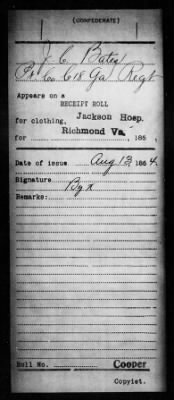 (CONFEDERATE)
J. C. Bates
Pt Co C 18 Ga Regt
Appears on a
RECEIPT ROLL
for clothing, Jackson Hosp.
for Richmond Va. 186 .
Date of issue Aug 13, 1864.
Signature
By x
Remarks:
Roll No. Cooper
Copyist.